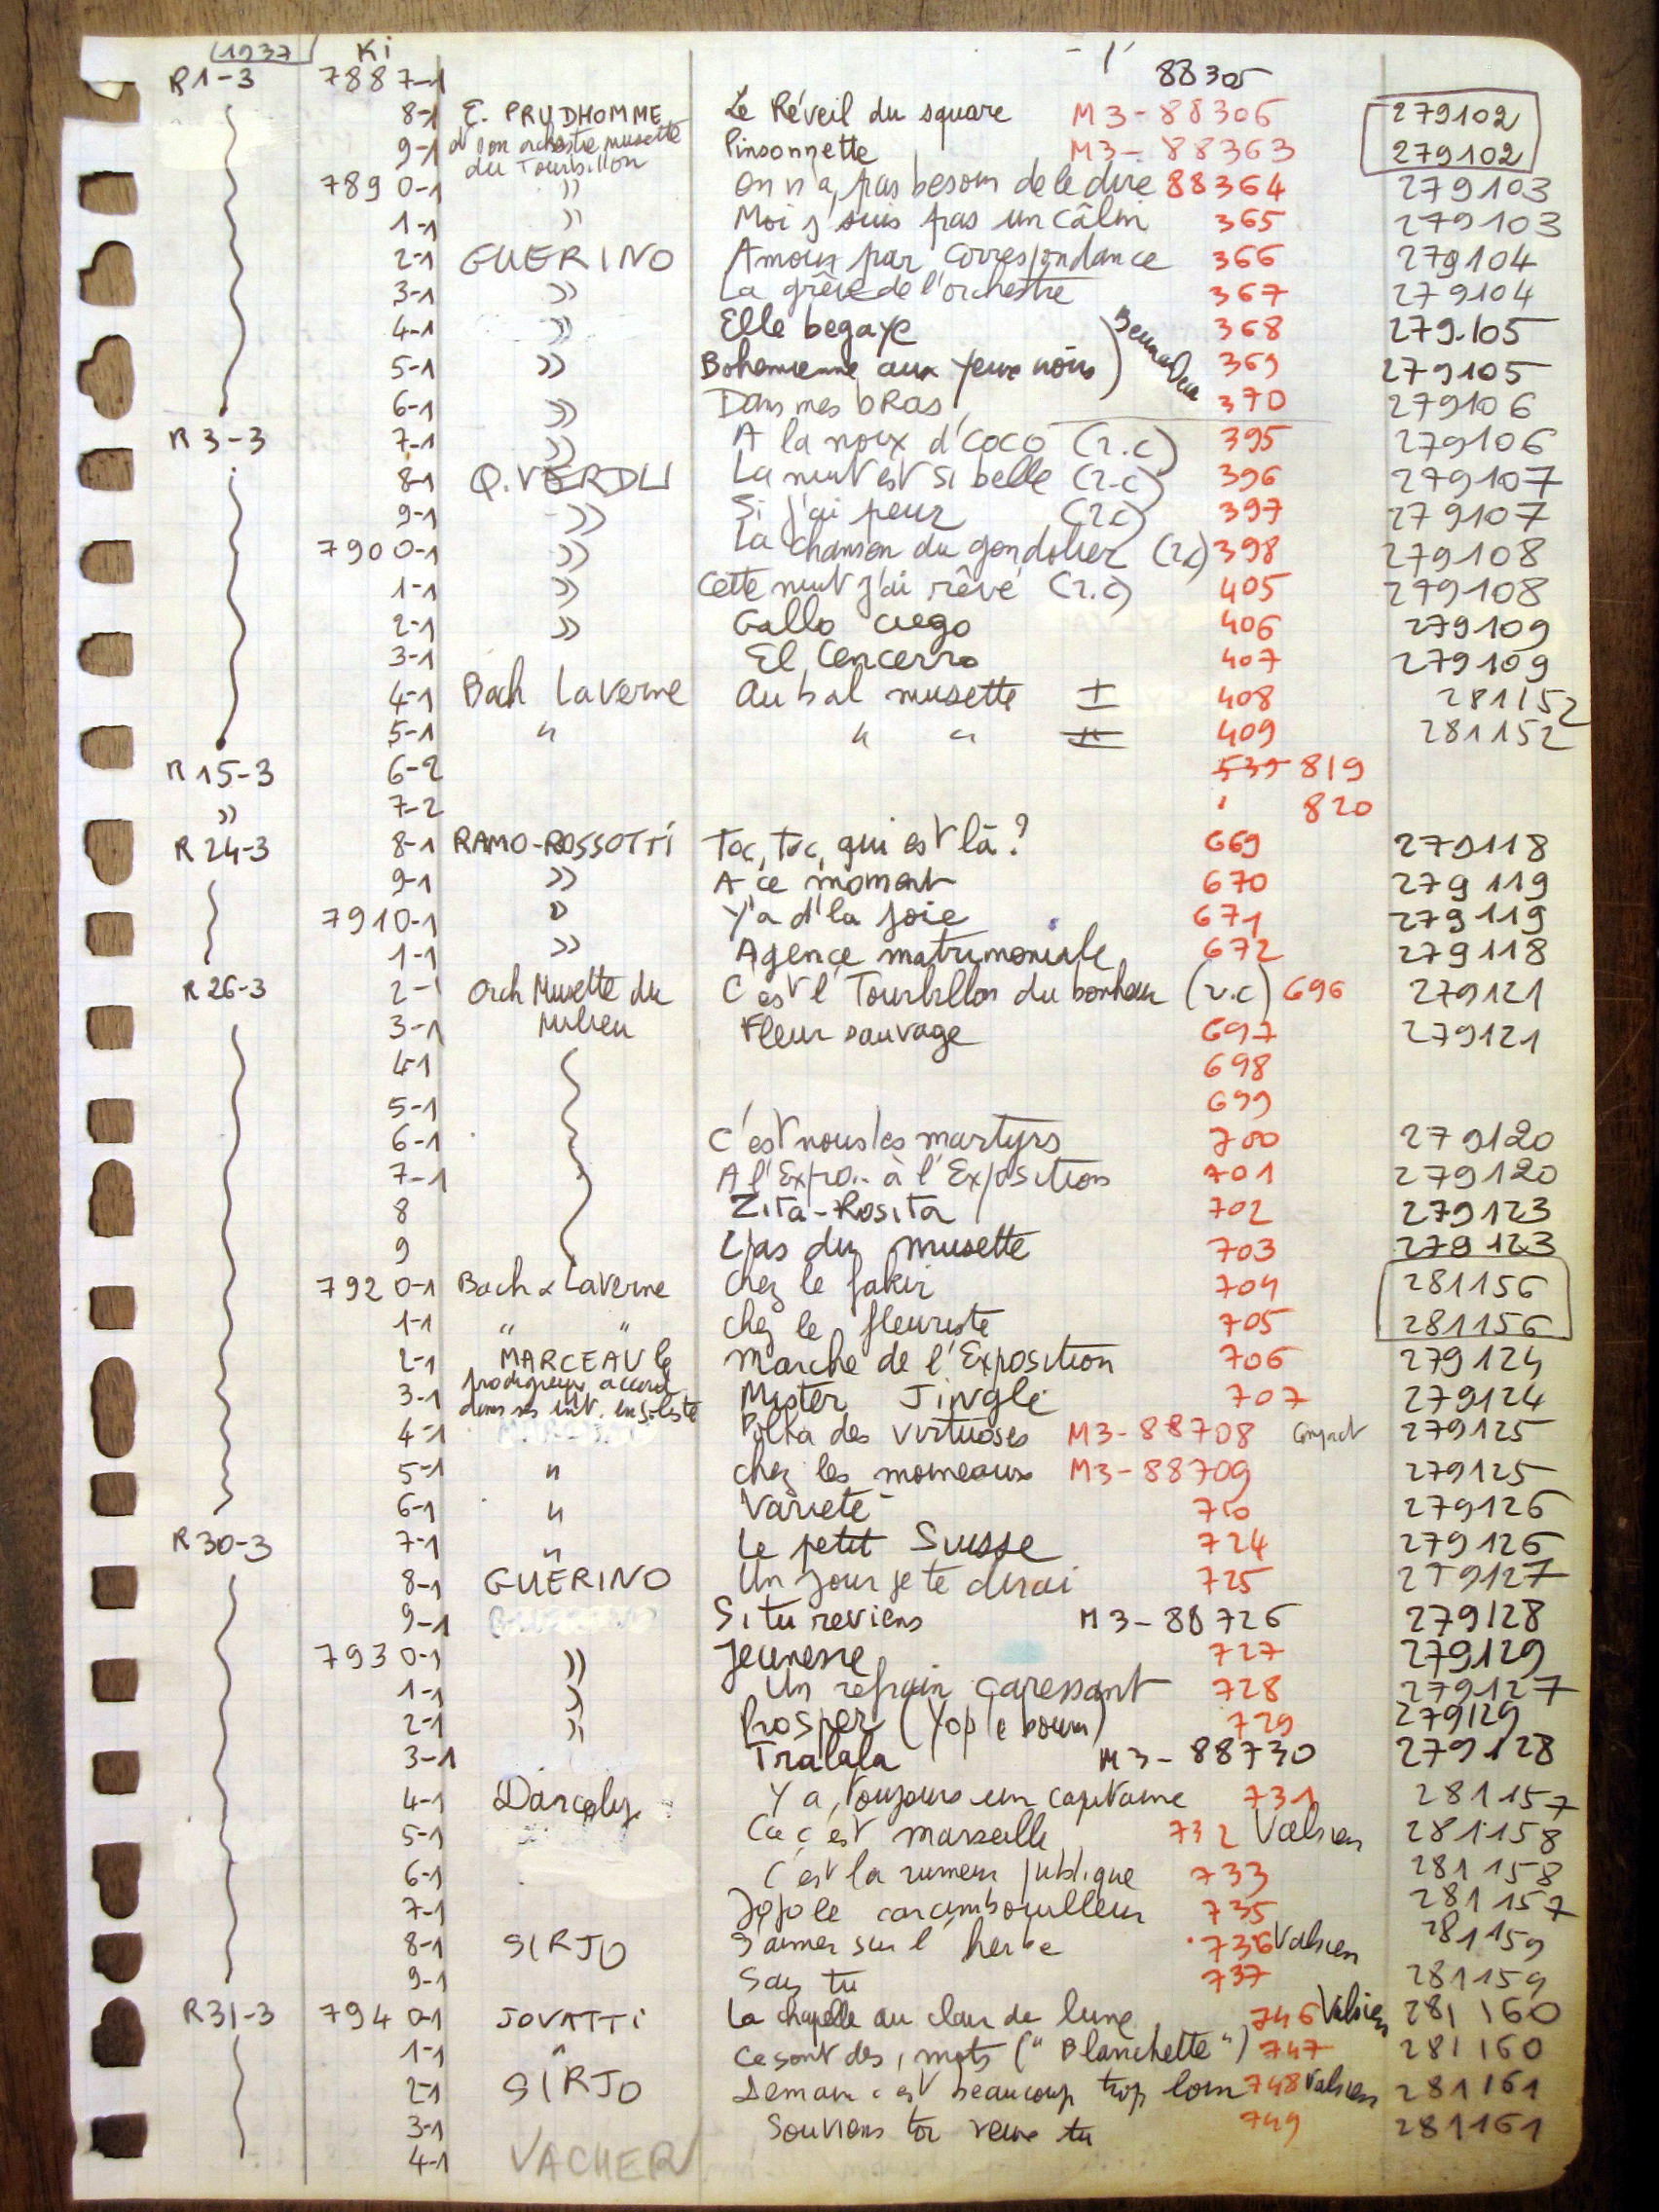 1937 Ki
R1-3 7887-1 88305
8-1 E. PRUDHOMME Le Réveil du square M3-88306 279102
9-1 & son orchestre musette du Tourbillon Pinsonnette M3-88363 279102
7890-1 " On n'a pas besoin de le dire 88364 279103
1-1 " Moi j'suis pas un câlin 365 279103
2-1 GUERINO Amour par correspondance 366 279104
3-1 " La grève de l'orchestre 367 279104
4-1 " Elle begaye 368 279.105
5-1 " Bohemienne aux yeux noirs 369 279105
6-1 " Dans mes bRas 370 279106
R3-3 7-1 " A la noix d'coco (r.c) 395 279106
8-1 Q. VERDU La nuit est si belle (r.c) 396 279107
9-1 " Si j'ai peur (r.c) 397 279107
7900-1 " La chanson du gondolier (r.c) 398 279108
1-1 " Cette nuit j'ai rêvé (r.c) 405 279108
2-1 " Gallo ciego 406 279109
3-1 El Cencerro 407 279109
4-1 Bach Laverne Au bal musette I 408 281152
5-1 " " " II 409 281152
R15-3 6-2 535 819
" 7-2 ' 820
R24-3 8-1 RAMO-ROSSOTTI Toc, toc, qui est là? 669 279118
9-1 " A ce moment 670 279119
7910-1 " Y'a d'la joie 671 279119
1-1 " Agence matrimoniale 672 279118
R26-3 2-1 Orch Musette du C'est l'Tourbillon du bonheur (r.c) 696 279121
3-1 Milieu Fleur sauvage 697 279121
4-1 698
5-1 699
6-1 C'est nous les martyrs 700 279120
7-1 A l'Expo.. à l'Exposition 701 279120
8 Zita-Rosita 702 279123
9 L'as du musette 703 279123
7920-1 Bach & Laverne Chez le fakir 704 281156
1-1 " " Chez le fleuriste 705 281156
2-1 MARCEAU le Marche de l'Exposition 706 279124
3-1 prodigieux accord. Mister Jingle 707 279124
dans ses int. en soliste
4-1 Polka des virtuoses M3-88708 Compact 279125
5-1 " Chez les moineaux M3-88709 279125
6-1 " Varieté 710 279126
R30-3 7-1 " Le petit Suisse 724 279126
8-1 GUERINO Un jour je te dirai 725 279127
9-1 Si tu reviens M3-88726 279128
7930-1 " Jeunesse 727 279129
1-1 " Un refrain caressant 728 279127
2-1 " Prosper (Yop le boum) 729 279129
3-1 Tralala M3-88730 279128
4-1 Darcelys Y a toujours un capitaine 731 281157
5-1 Ca c'est marseille 732 Valsien 281158
6-1 C'est la rumeur publique 733 281158
7-1 Jojo le carambouilleur 735 281157
8-1 SIRJO S'aimer sur l'herbe 736 Valsien 281159
9-1 Sais tu 737 281159
R31-3 7940-1 JOVATTI La chapelle au clair de lune 746 Valsien 281160
1-1 " Ce sont des mots ("Blanchette") 747 281160
2-1 SIRJO Demain c'est beaucoup trop loin 748 Valsien 281161
3-1 Souviens toi veux tu 749 281161
4-1 VACHER